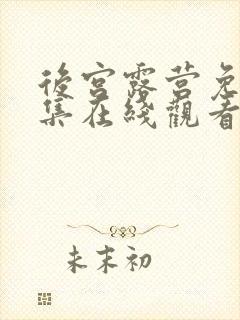 後宫露营免
集在綫觀看
未末初